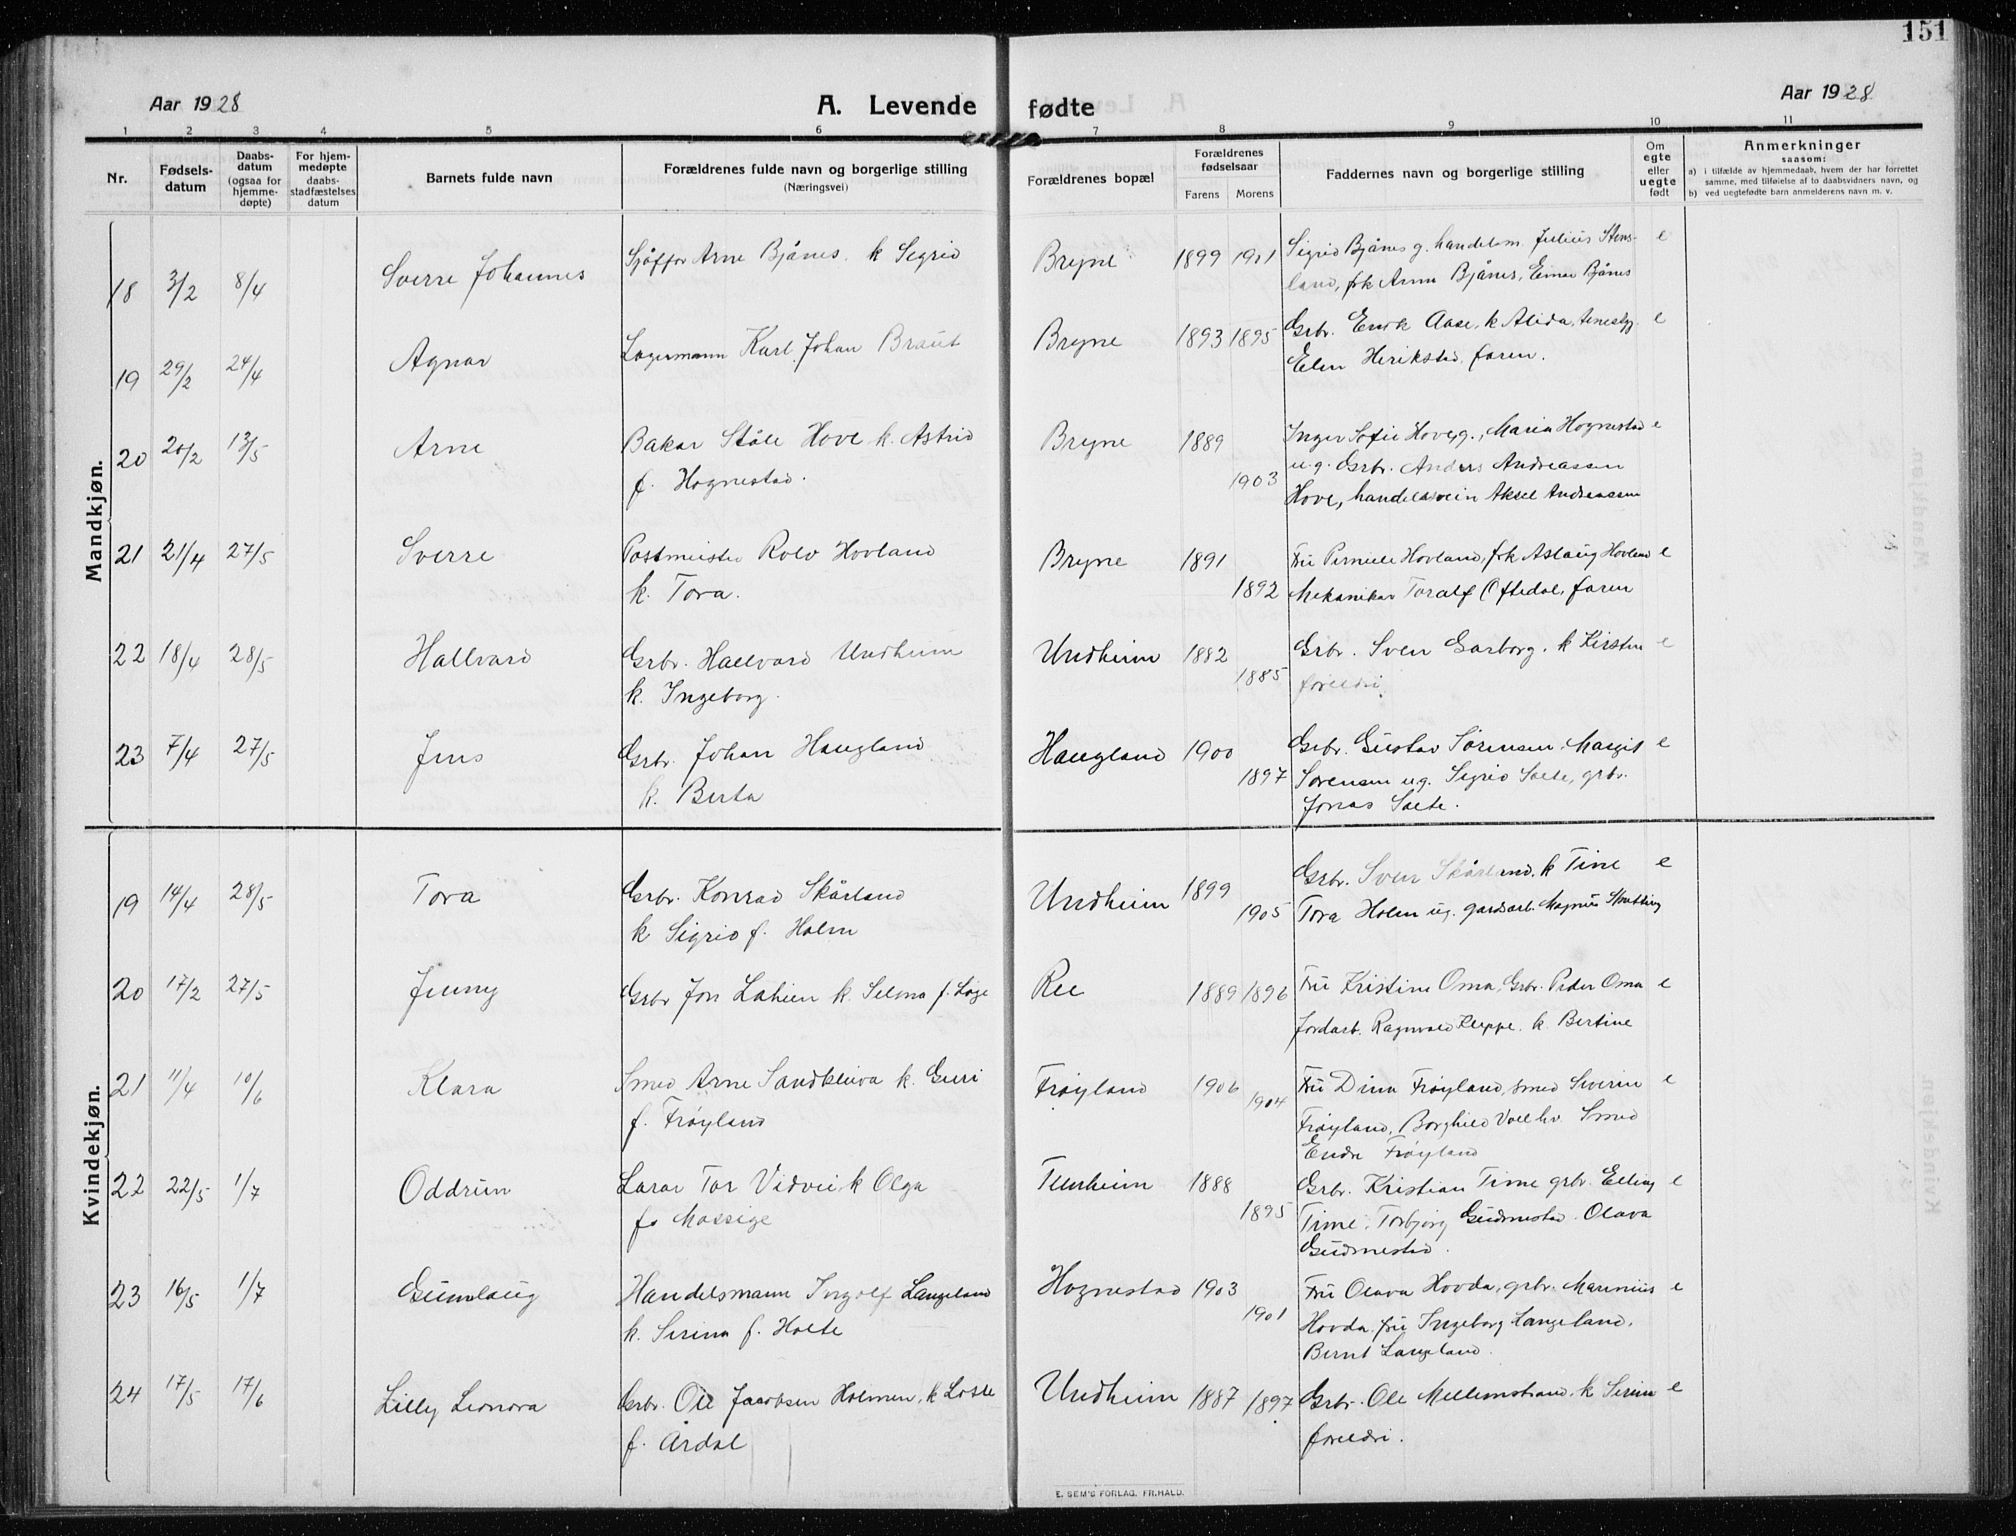 151
Aar 1928
A. Levende fødte
Aar 1928
1 2 3 4 5 6 7 8 9 10 11
Nr.
Fødsels-
datum
Daabs-
datum
(ogsaa for
hjemme-
døpte)
For hjem-
medøpte
daabs-
stadfæstelses
datum
Barnets fulde navn
Forældrenes fulde navn og borgerlige stilling
(Næringsvei)
Forældrenes bopæl
Forældrenes
fødselsaar
Farens Morens
Faddernes navn og borgerlige stilling
Om
egte
eller
uegte
født
Anmerkninger
saasom:
a) i tilfælde av hjemmedaab, hvem der har forrettet
samme, med tilføielse af to daabsvidners navn, og
b) ved uegtefødte barn anmelderens navn m. v.
Mandkjøn.
18 3/2 8/4 Sverre Johannes Sjåffør Arne Bjånes. k Sigrid Bryne 1899 1901 Sigrid Bjånes g. handelsm. Julius Stens- e
land, frk Anna Bjånes, Einar Bjånes
19 29/2 24/4 Agnar Lagermann Karl Johan Braut Bryne 1893 1895 Grb. Enok Aase, k Alida, e
Elen Herikstad, faren.
20 20/2 13/5 Arne Bakar Ståle Hove k. Astrid Bryne 1889 Inger Sofie Hove, g., Maria Hognestad e
f. Hognestad. 1903 u.g. Grbr. Anders Andreassen
Hove, handelsvein Aksel Andreassen
21 21/4 27/5 Sverre Postmeister Rolv Hovland Bryne 1891 Fru Pernele Hovland, frk Aslaug Hovland e
k. Tora. 1892 Mekanikar Toralf Oftedal, faren
22 18/4 28/5 Hallvard Grbr. Hallvard Undheim Undheim 1882 Grbr. Sven Garborg. k Kirsten e
k. Ingeborg. 1885 foreldri.
23 7/4 27/5 Jens Grbr. Johan Haugland Haugland 1900 Grbr. Gustav Sørensen. Margit e
k. Berta 1897 Sørensen ug. Sigrid Salte, grbr.
Jonas Salte.
Kvindekjøn.
19 14/4 28/5 Tora Grbr. Konrad Skårland Undheim 1899 Grbr. Sven Skårland. k Tine e
k Sigrid f. Holm 1905 Tora Holm ug. gardsarb. Magnus
20 17/2 27/5 Jenny Grbr Jon Lahien k. Selma f. Løge Ree 1889 1896 Fru Kristine Oma, Grbr. Peder Oma e
Jordarb. Ragnvald Kleppe. k. Bertine
21 11/4 10/6 Klara Smed Arne Sandkleiva k. Guri Frøyland 1906 Fru Dina Frøyland, smed Severin e
f. Frøyland 1904 Frøyland, Borghild Voll hv Smed
Endre Frøyland
22 22/5 1/7 Oddrun Lærar Tor Vidvei k Olga Tunheim 1888 Grbr. Kristian Time grbr. Elling e
fø Mossige 1895 Time. Torbjørg Gudmestad. Olava
Gudmestad.
23 16/5 1/7 Gunnlaug Handelsmann Ingolf Langeland Hognestad 1903 Fru Olava Hovda, grbr. Marinius e
k. Serina f. Holte 1901 Hovda. fru Ingeborg Langeland.
Bernt Langeland.
24 17/5 17/6 Lilly Leonora Grbr. Ole Jacobsen Holmen, k Lovise Undheim 1887 1897 Grbr. Ole Mellemstrand. k Serine e
f. Årdal foreldri.
E. SEM'S FORLAG, FR.HALD.